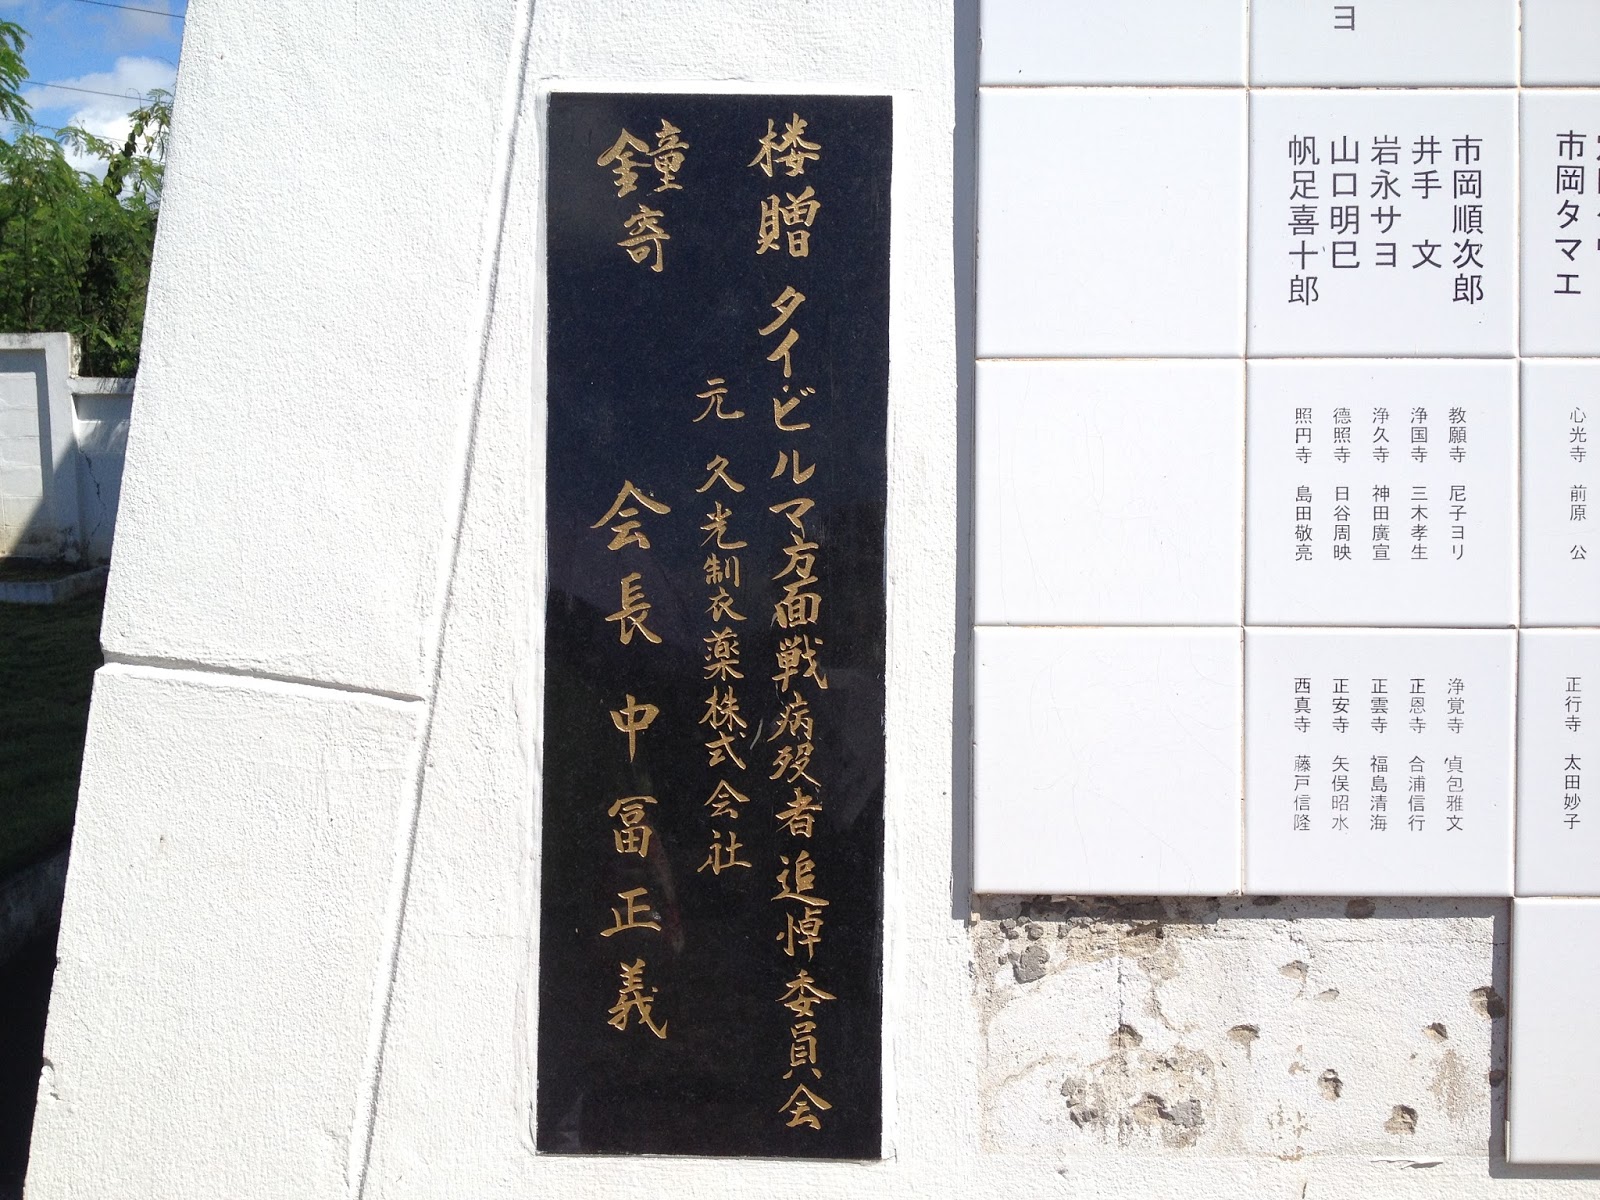 楼贈 タイビルマ方面戦病殁者追悼委員会
元 久光制衣薬株式会社
鐘寄 会長中冨正義
ヨ
市岡タマエ
市岡順次郎
井手 文
岩永サヨ
山口明巳
帆足喜十郎
心光寺 前原 公
教願寺 尼子ヨリ
浄国寺 三木孝生
浄久寺 神田廣宣
德照寺 日谷周映
照円寺 島田敬亮
正行寺 太田妙子
浄覚寺 貞包雅文
正恩寺 合浦信行
正雲寺 福島清海
正安寺 矢俣昭水
西真寺 藤戸信隆